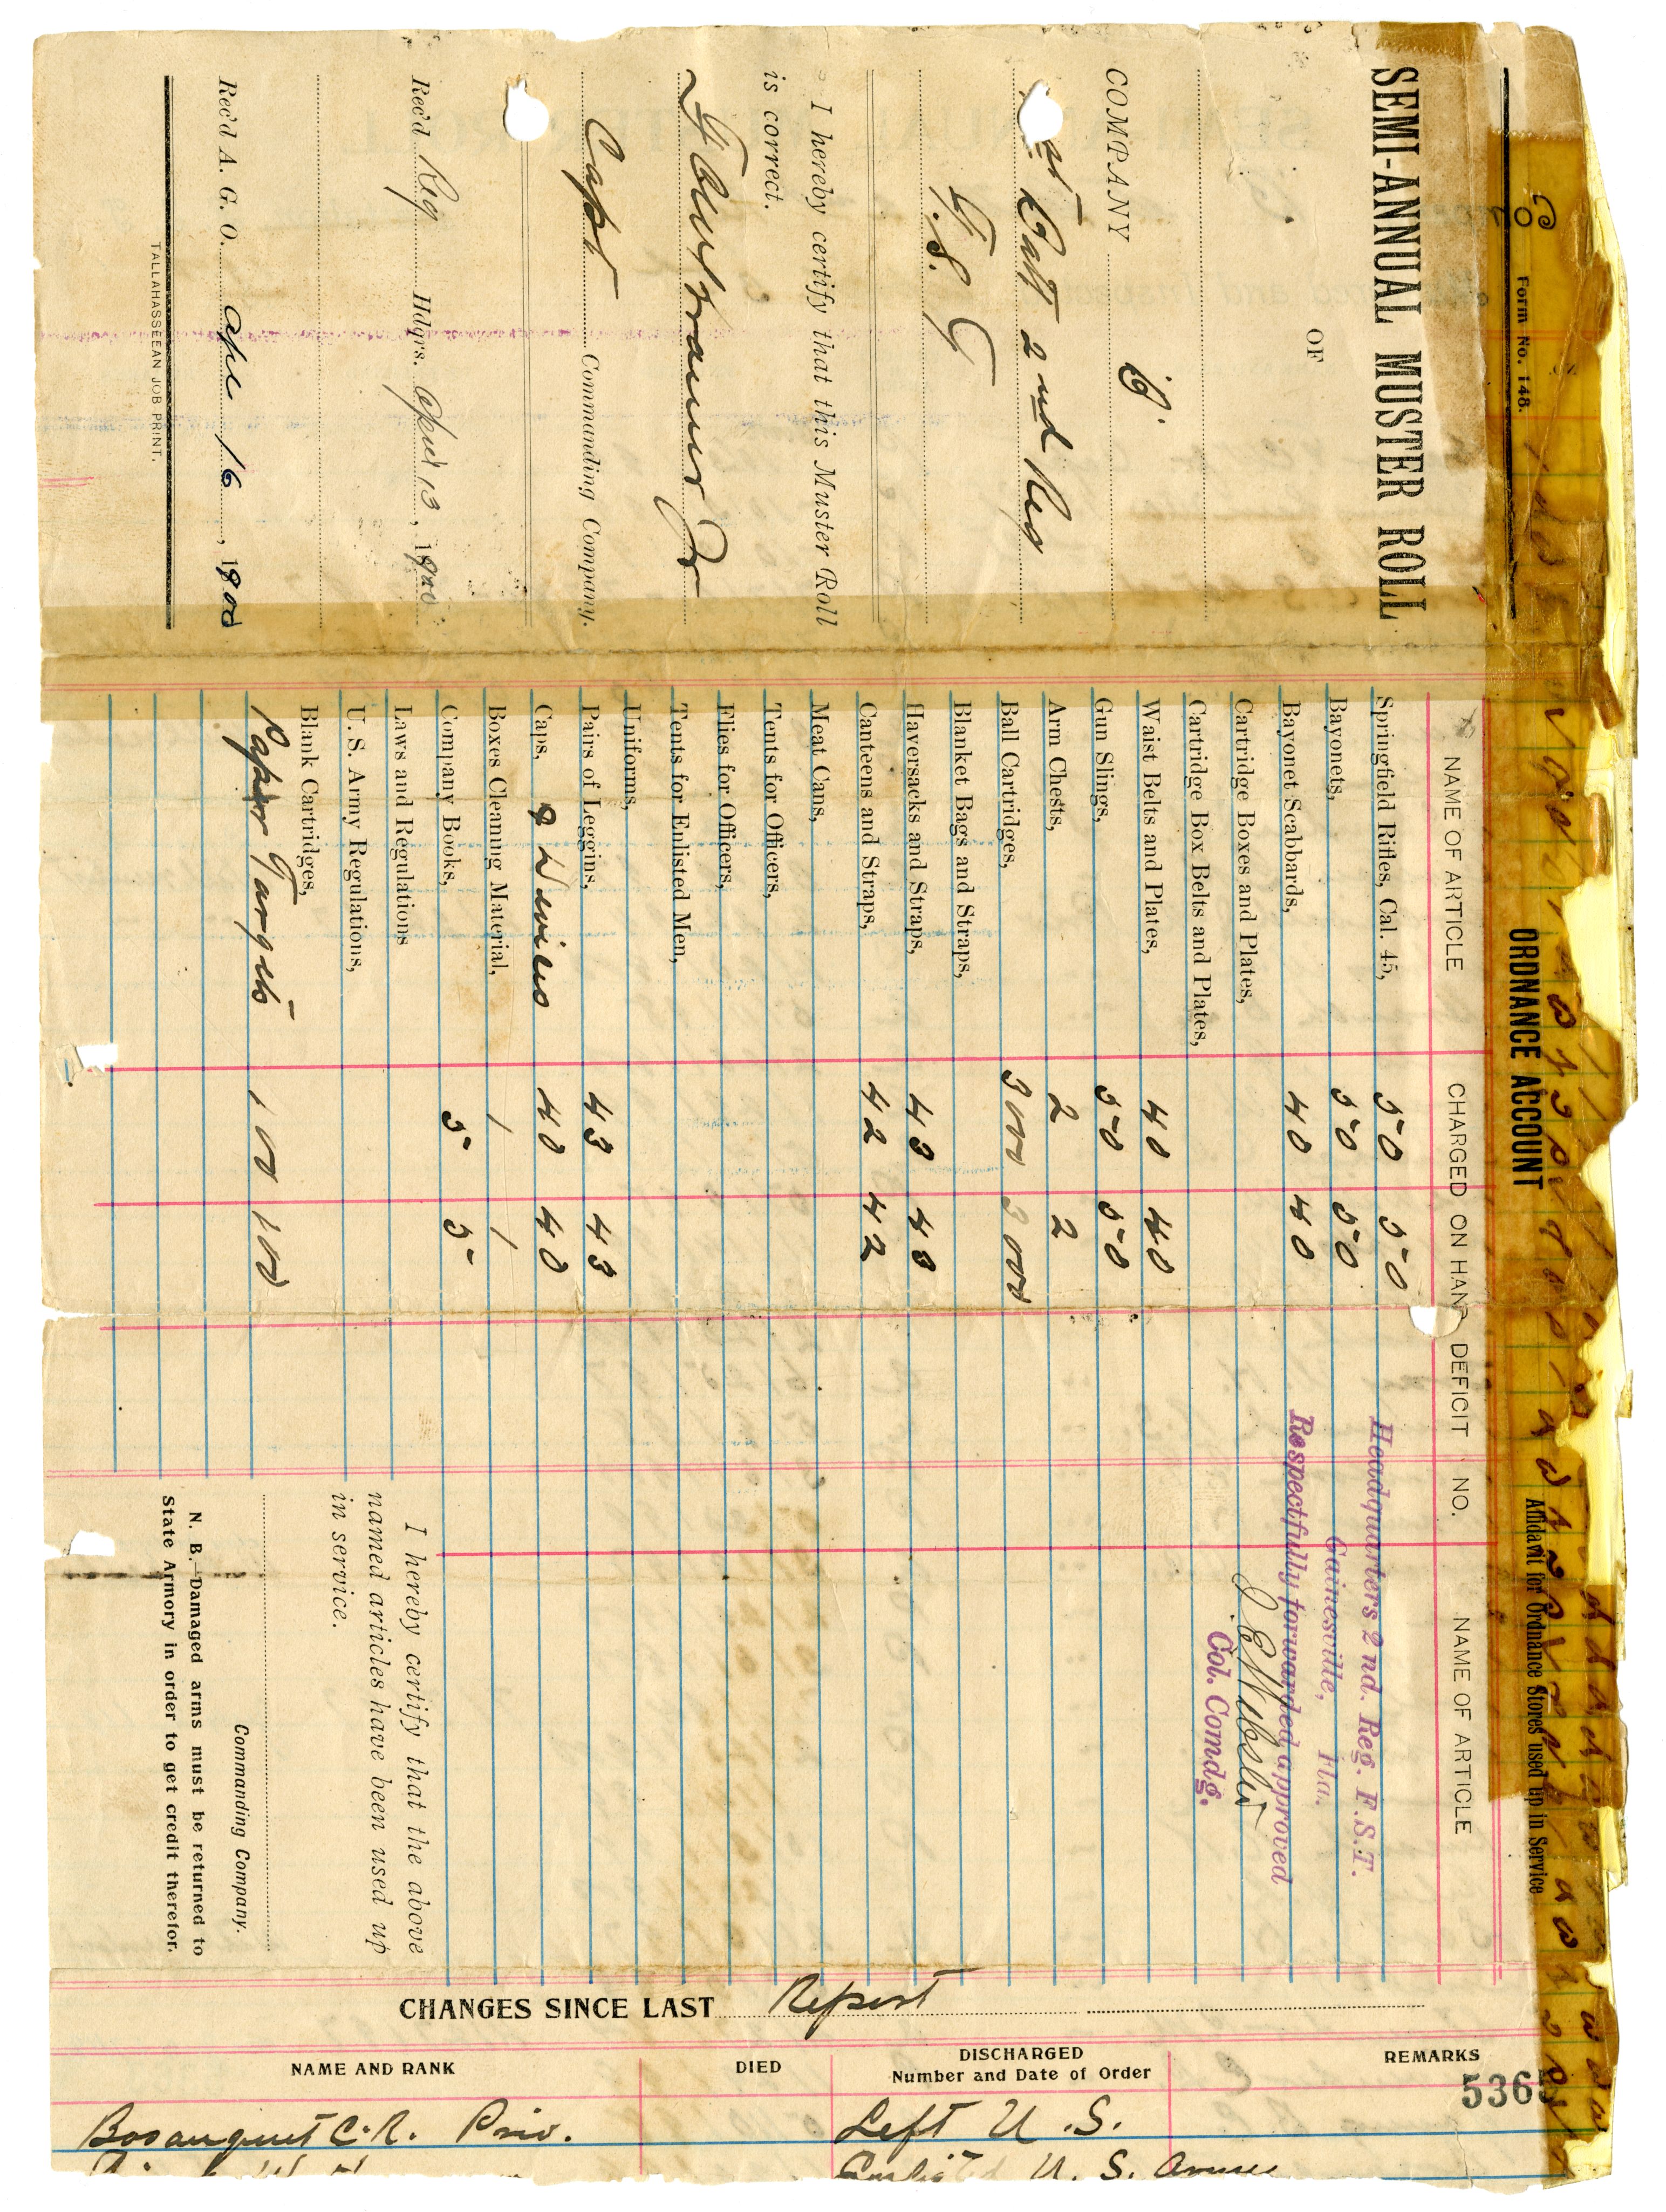 Form No. 148.
SEMI-ANNUAL MUSTER ROLL
OF
COMPANY
Batt 2nd Reg
F. S.
I hereby certify that this Muster Roll
is correct.
Jr
Capt Commanding Company.
Rec'd Reg Hdqrs. April 13, 1900
Rec'd A. G. O. Apr 16, 1900
TALLAHASSEEAN JOB PRINT.
ORDNANCE ACCOUNT
NAME OF ARTICLE CHARGED ON HAND DEFICIT
Springfield Rifles, Cal. 45, 50 50
Bayonets, 50 50
Bayonet Scabbards, 40 40
Cartridge Boxes and Plates,
Cartridge Box Belts and Plates,
Waist Belts and Plates, 40 40
Gun Slings, 50 50
Arm Chests, 2 2
Ball Cartridges, 3000 3000
Blanket Bags and Straps,
Haversacks and Straps, 43 43
Canteens and Straps, 42 42
Meat Cans,
Tents for Officers,
Flies for Officers,
Tents for Enlisted Men,
Uniforms,
Pairs of Leggins, 43 43
Caps, 40 40
Boxes Cleaning Material, 1 1
Company Books, 5 5
Laws and Regulations
U. S. Army Regulations,
Blank Cartridges,
Paper Targets 100 100
Affidavit for Ordnance Stores used up in Service
NO. NAME OF ARTICLE
Headquarters 2nd. Reg. F.S.T.
Gainesville, Fla.
Respectfully forwarded approved
Col. Comdg.
I hereby certify that the above
named articles have been used up
in service.
Commanding Company.
N. B.—Damaged arms must be returned to
State Armory in order to get credit therefor.
CHANGES SINCE LAST Report
NAME AND RANK DIED DISCHARGED Number and Date of Order REMARKS
536
Bosanquet C. R. Priv. Left U. S.
Enlisted U. S. Army